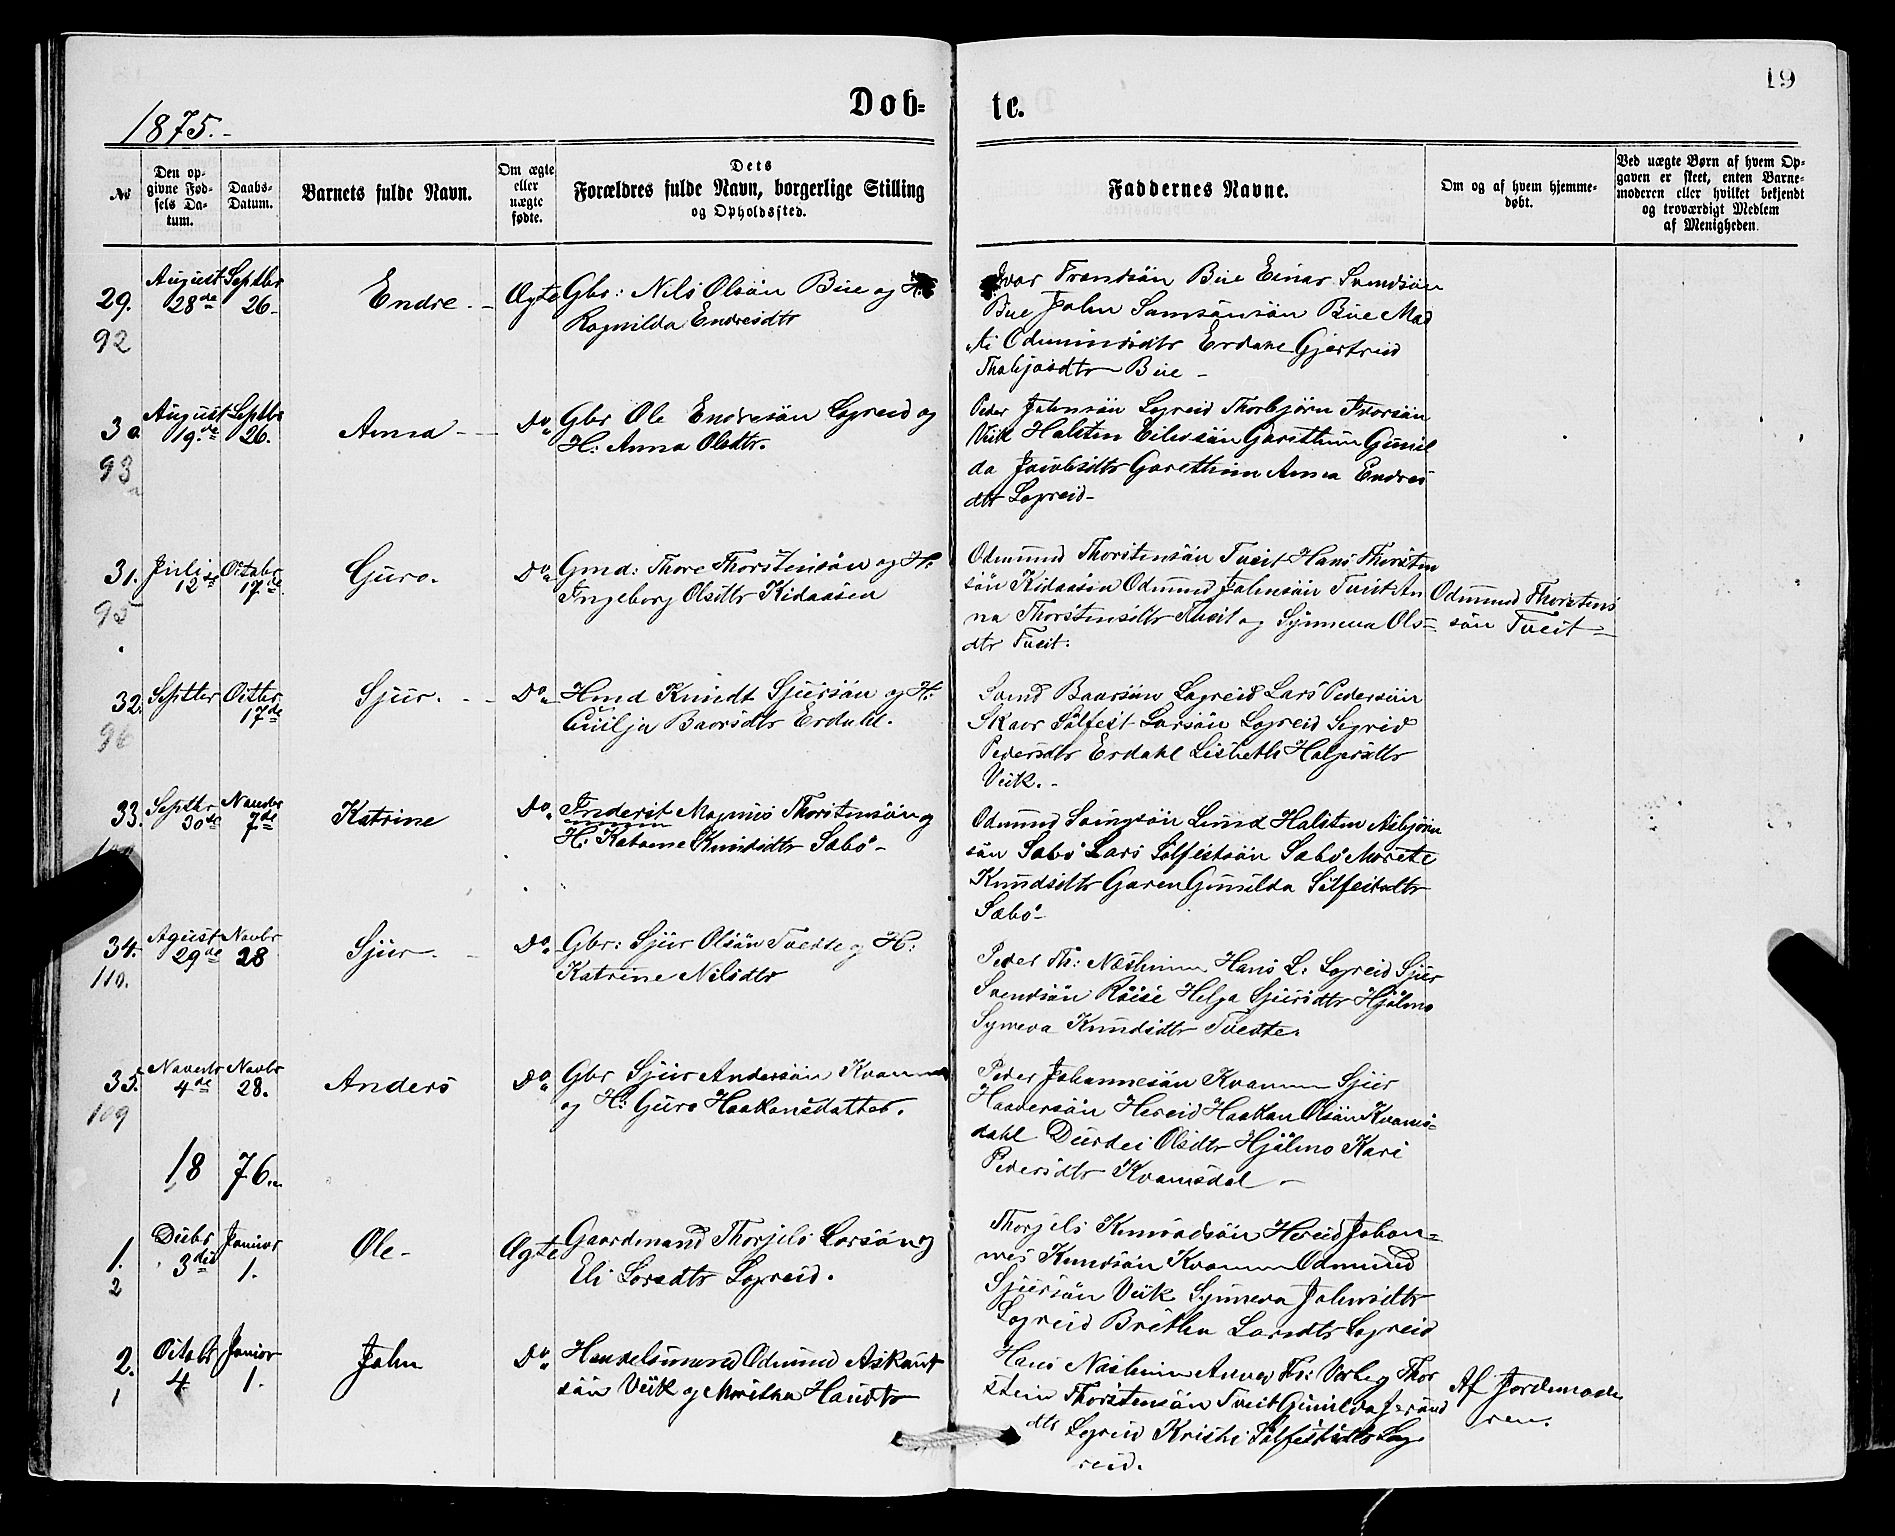 19
Døb-
te.
1875.-
No
Den op-
givne Fød-
sels Da-
tum.
Daabs-
Datum.
Barnets fulde Navn.
Om ægte
eller
uægte
fødte.
Dets
Forældres fulde Navn, borgerlige Stilling
og Opholdssted.
Faddernes Navne.
Om og af hvem hjemme-
døbt.
Ved uægte Børn af hvem Op-
gaven er skeet, enten Barne-
moderen eller hvilket bekjendt
og troværdigt Medlem
af Menigheden.
29.
92
August
28de
Septbr
26.
Endre.-
Ægte
Gbr: Nils Olsön Bue og H:
Ragnilda Endresdtr
Ivar Trondsön Bue Einar Svendsön
Bue John Samsonsön Bue Mad
Odmundsdtr Erdahl Gjertrud
Bue -
30
93
August
19.de
Septbr
26.
Anna -
Do
Gbr Ole Endresön Legreid og
H: Anna Olsdtr.
Peder Johnsön Legreid Thorbjørn Ivorsön
Veik Halsten Eilevsön Garethun Gunil
da Jacobsdtr Garethun Anna Endres
dtr Legreid-
31.
95
Juli
12te
Octobr
17de
Guro.
Do
Gmd: Thore Thorstensön og H:
Ingeborg Olsdtr Kidaasen
Odmund Thorstensön Tveit Hans Thorsten
sön Kidaasen Odmund Johnsön Tveit An
na Thorstensdtr Tveit og Synneva Ols=
dtr Tveit.
Odmund Thorstens
sön Tveit
32.
96
Septbr
Octbr
17de
Sjur.-
Do
Hmd Knudt Sjursön og H:
Baarsdtr Erdahl.
Svend Baarsön Legreid Lars Pedersön
Skaar Sölfest Larsön Legreid Segrid
Pedersdtr Erdahl Lisbeth Holgersdtr
Veik.-
33.
Septbr
30te
Novbr
7de
Katrine
Do
Inderst Magnus Thorstensön og
H: Knudsdtr Sæbö-
Odmund Lund Halsten Asbjörn
sön Sæbö Lars Sölfestsön Sæbö Marete
Knudsdtr Garen Gunilda Sölfestsdtr
Sæbö-
34.
110.
Agust
29de
Novbr
28
Sjur.-
Do
Gbr: Sjur Olsön Tveite og H:
Katrine Nilsdtr
Peder Th: Næshiem Hans L: Legreid Sjur
Svendsön Röise Helga Sjursdtr Hjölmo
Syneva Knudsdtr Tveite.
35.
109
Novbr
4de
Novbr
28.
Anders
Do
Gbr Sjur Andersön Kvamme
og H: Guro Haakonsdatter.
Peder Johannesön Kvamme Sjur
Haaversön Hereid Haakon Olsön Kvams-
dahl Durdei Olsdtr Hjölmo Kari
Pedersdtr Kvamsdal -
18 76.
1.
2
Decbr
3die
Januar
1.
Ole-
Ægte
Gaardmand Thorjels Larsön og
Eli Larsdtr Legreid.
Thorjels Hereid Johan=
nes Knudsön Kvamme Odmund
Sjursön Veik Synneva Johnsdtr
Legreid Britha Larsdtr Legreid
2.
1
Octobr
4
Januar
1.
John
Do
Handelsmand Odmund
sön Veik og Maritha Hansdtr
Hans Næshiem Anna Th: Varberg Thor
stein Thorstensön Tveit Gunilda
dtr Legreid Kristi Sölfestsdtr Leg
reid.
Af Jordmode
ren.